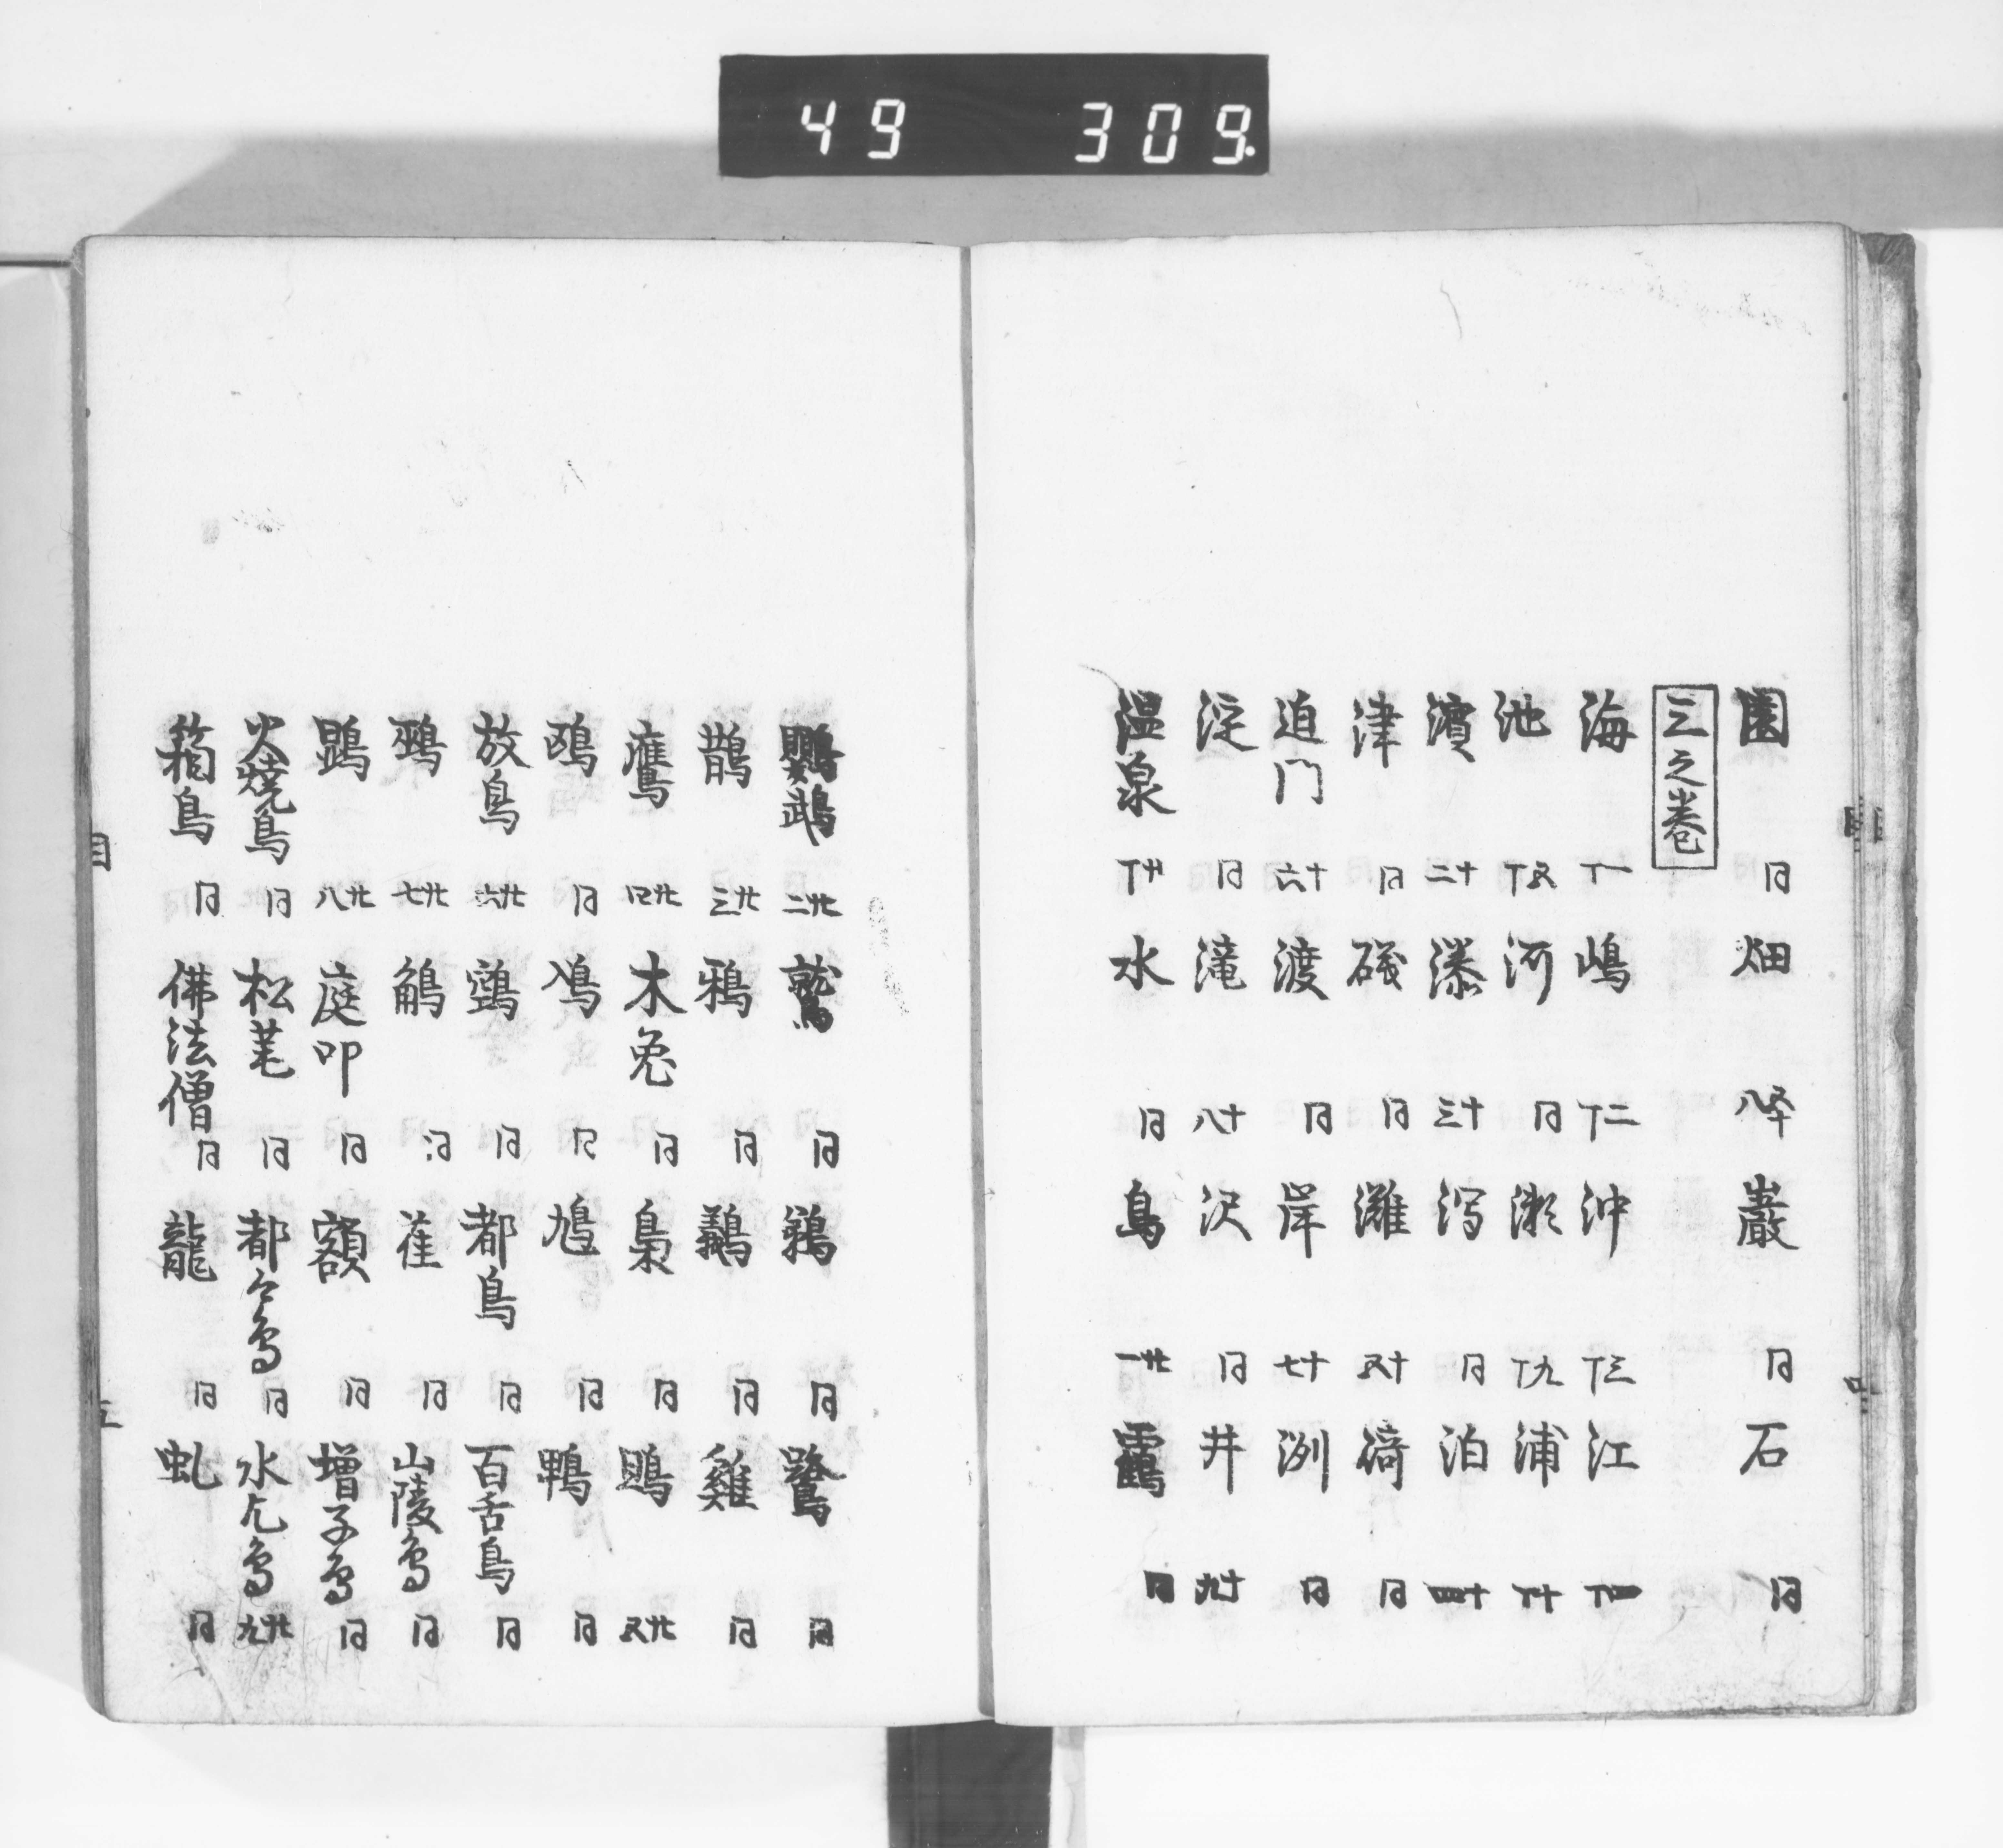 49 309.
園 同 畑 八卒 巌 同 石 同
三之巻
海 丁一 嶋 丁二 沖 丁三 江 丁四
池 丁五 河 同 瀬 丁九 浦 丁十
濱 十二 瀑 十三 泻 同 泊 十四
津 同 磯 同 灘 十五 碕 同
迫门 十六 渡 同 岸 十七 洲 同
淀 同 滝 十八 沢 同 井 十九
温泉 丁廿 水 同 鳥 廿一 靍 同
鸚鵡 廿二 鷲 同 鶏 同 鷺 同
鵲 廿三 鴉 同 同 雞 同
鷹 廿四 木兔 同 梟 同 鴫 廿五
鴎 同 鳰 同 鳩 同 鴨 同
放鳥 廿六 同 都鳥 同 百舌鳥 同
廿七 同 萑 同 山陵鳥 同
鵾 廿八 庭叩 同 額 同 増子鳥 同
火焼鳥 同 松毟 同 都々鳥 同 水乞鳥 廿九
箱鳥 同 佛法僧 同 龍 同 虬 同
目